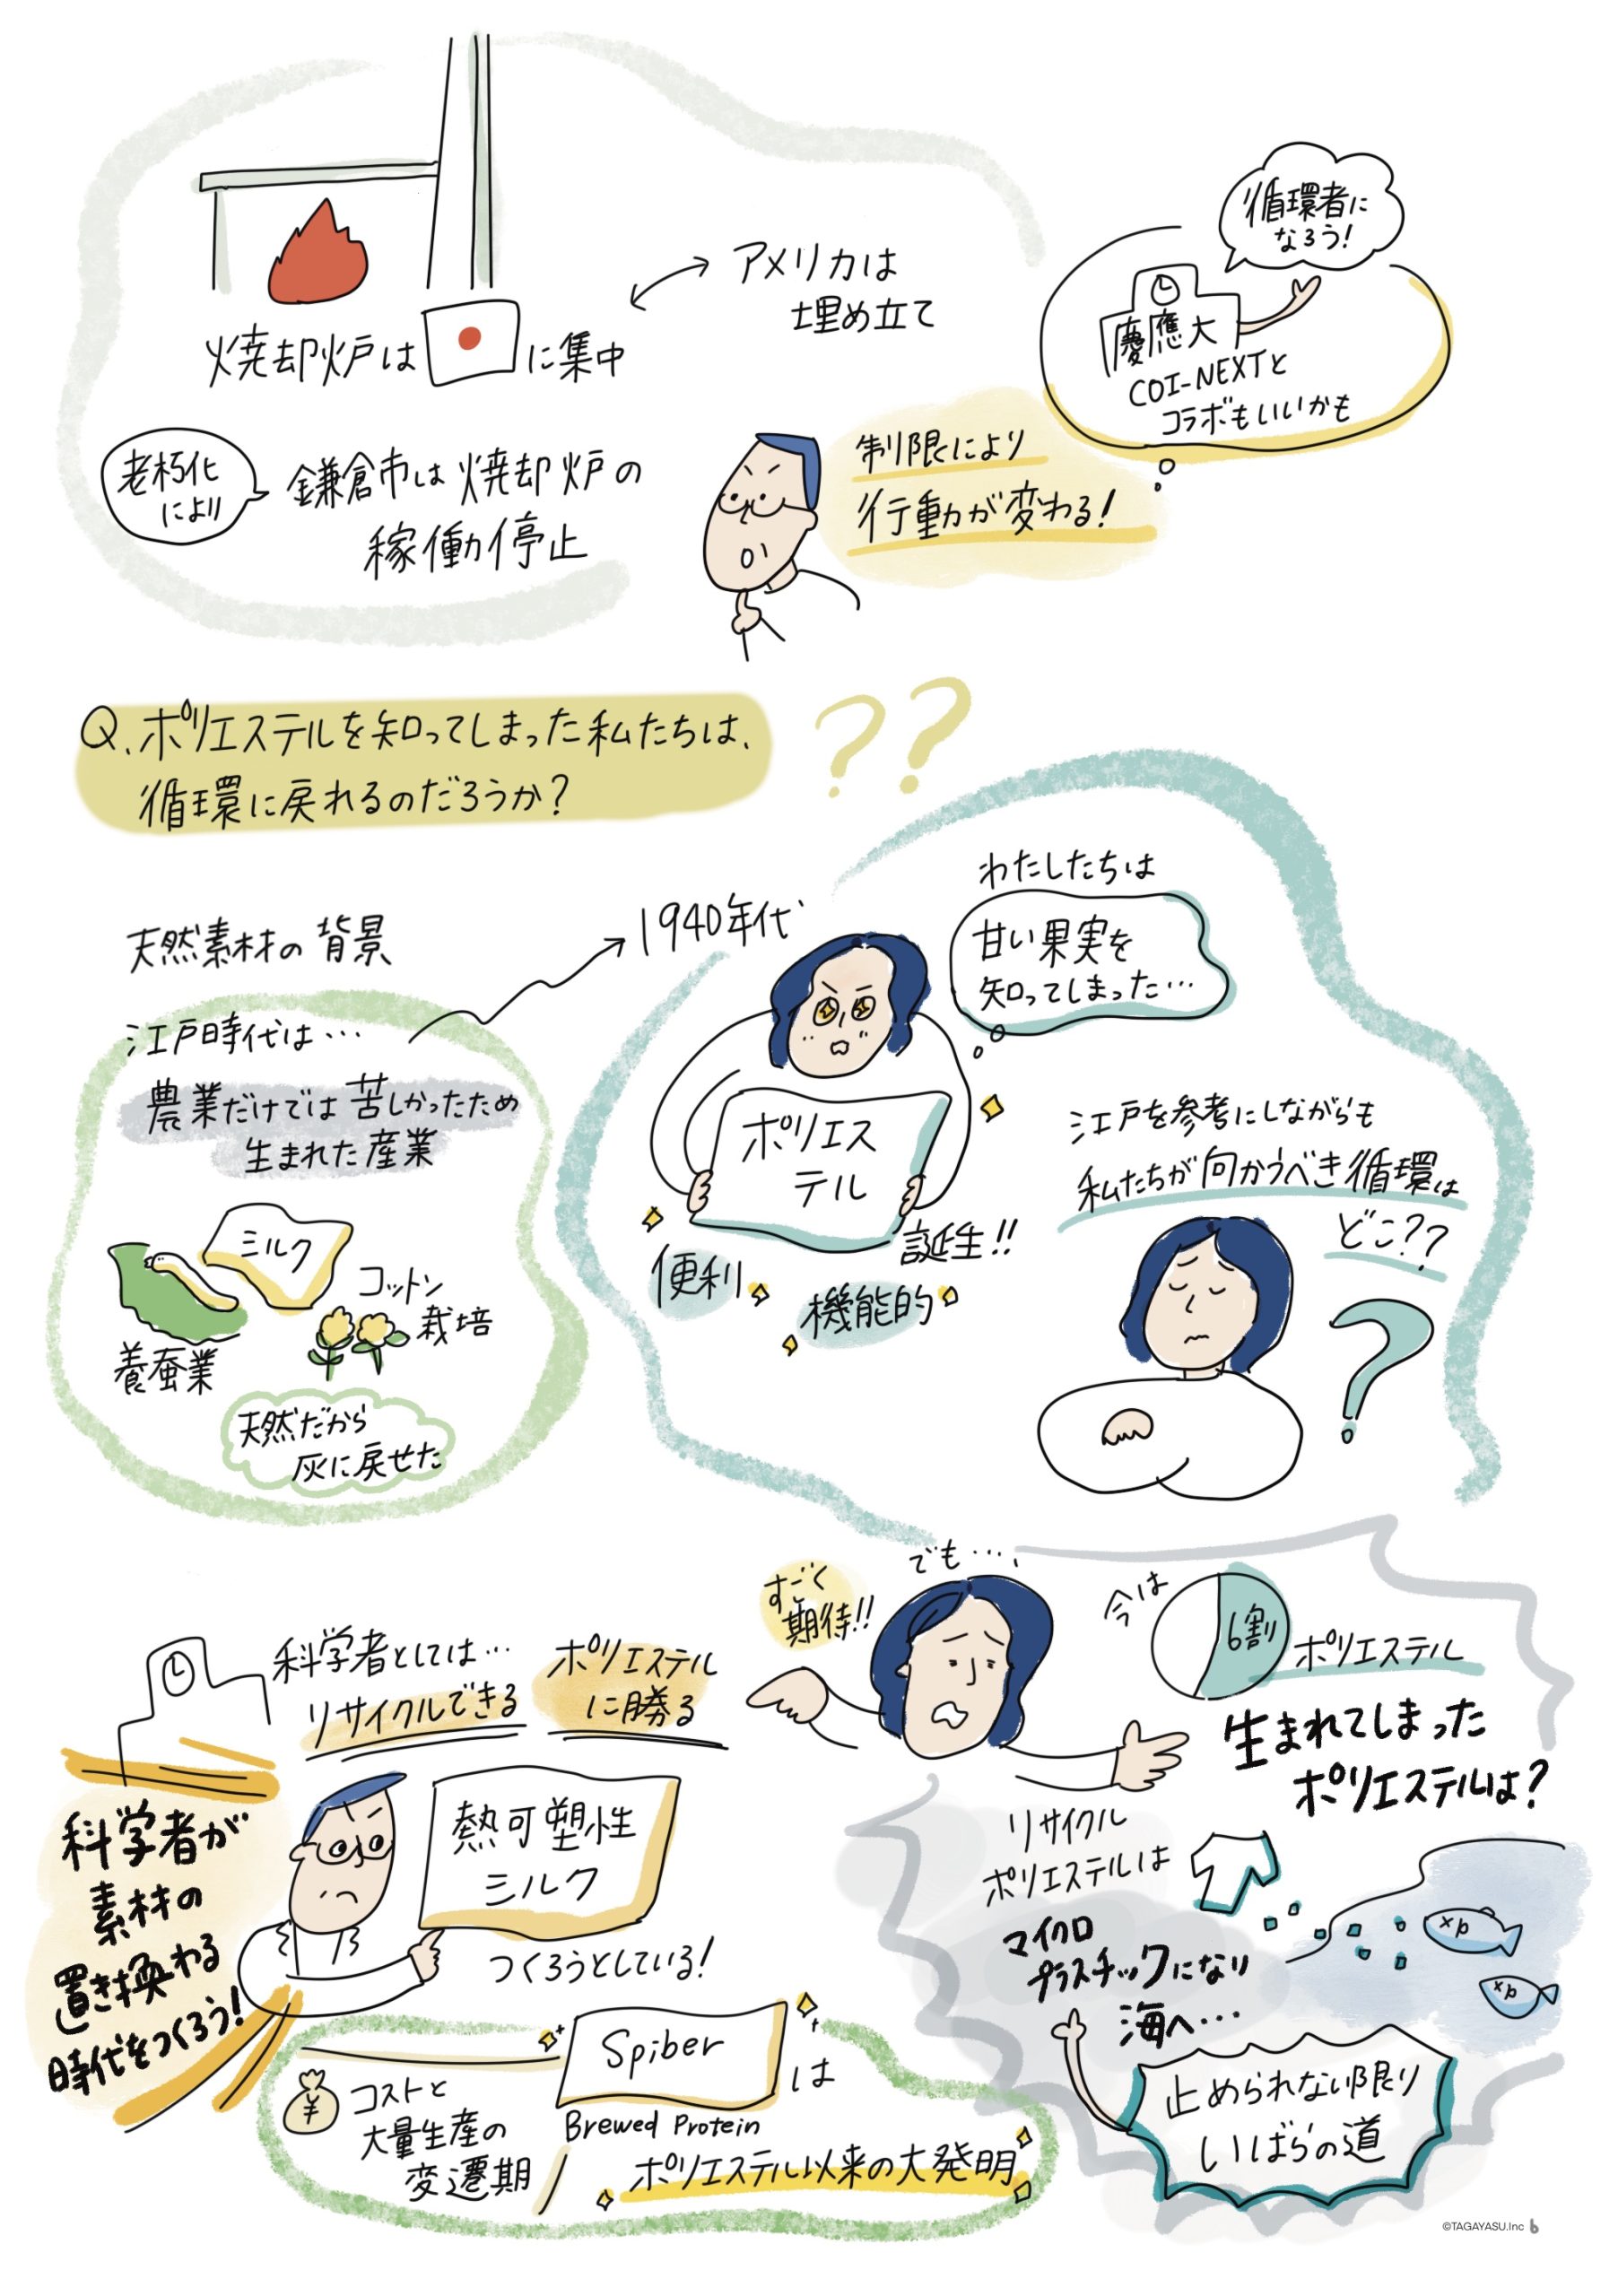 焼却炉は
に集中
アメリカは
埋め立て
循環者に
なろう!
慶應大
COI-NEXTと
コラボもいいかも
老朽化
により
鎌倉市は焼却炉の
稼働停止
制限により
行動が変わる!
Q.ポリエステルを知ってしまった私たちは、
循環に戻れるのだろうか?
??
天然素材の背景
江戸時代は…
農業だけでは苦しかったため
生まれた産業
ミルク
コットン
栽培
養蚕業
天然だから
灰に戻せた
1940年代
わたしたちは
甘い果実を
知ってしまった…
ポリエス
テル
誕生!!
便利
機能的
江戸を参考にしながらも
私たちが向かうべき循環は
どこ??
?
科学者としては…
リサイクルできる
ポリエステル
に勝る
熱可塑性
シルク
つくろうとしている!
科学者が
素材の
置き換わる
時代をつくろう!
すごく
期待!!
でも…、
今は
6割
ポリエステル
生まれてしまった
ポリエステルは?
リサイクル
ポリエステルは
マイクロ
プラスチックになり
海へ…
止められない限り
いばらの道
¥
コストと
大量生産の
変遷期
Spiber
は
Brewed Protein
ポリエステル以来の大発明
©TAGAYASU.Inc